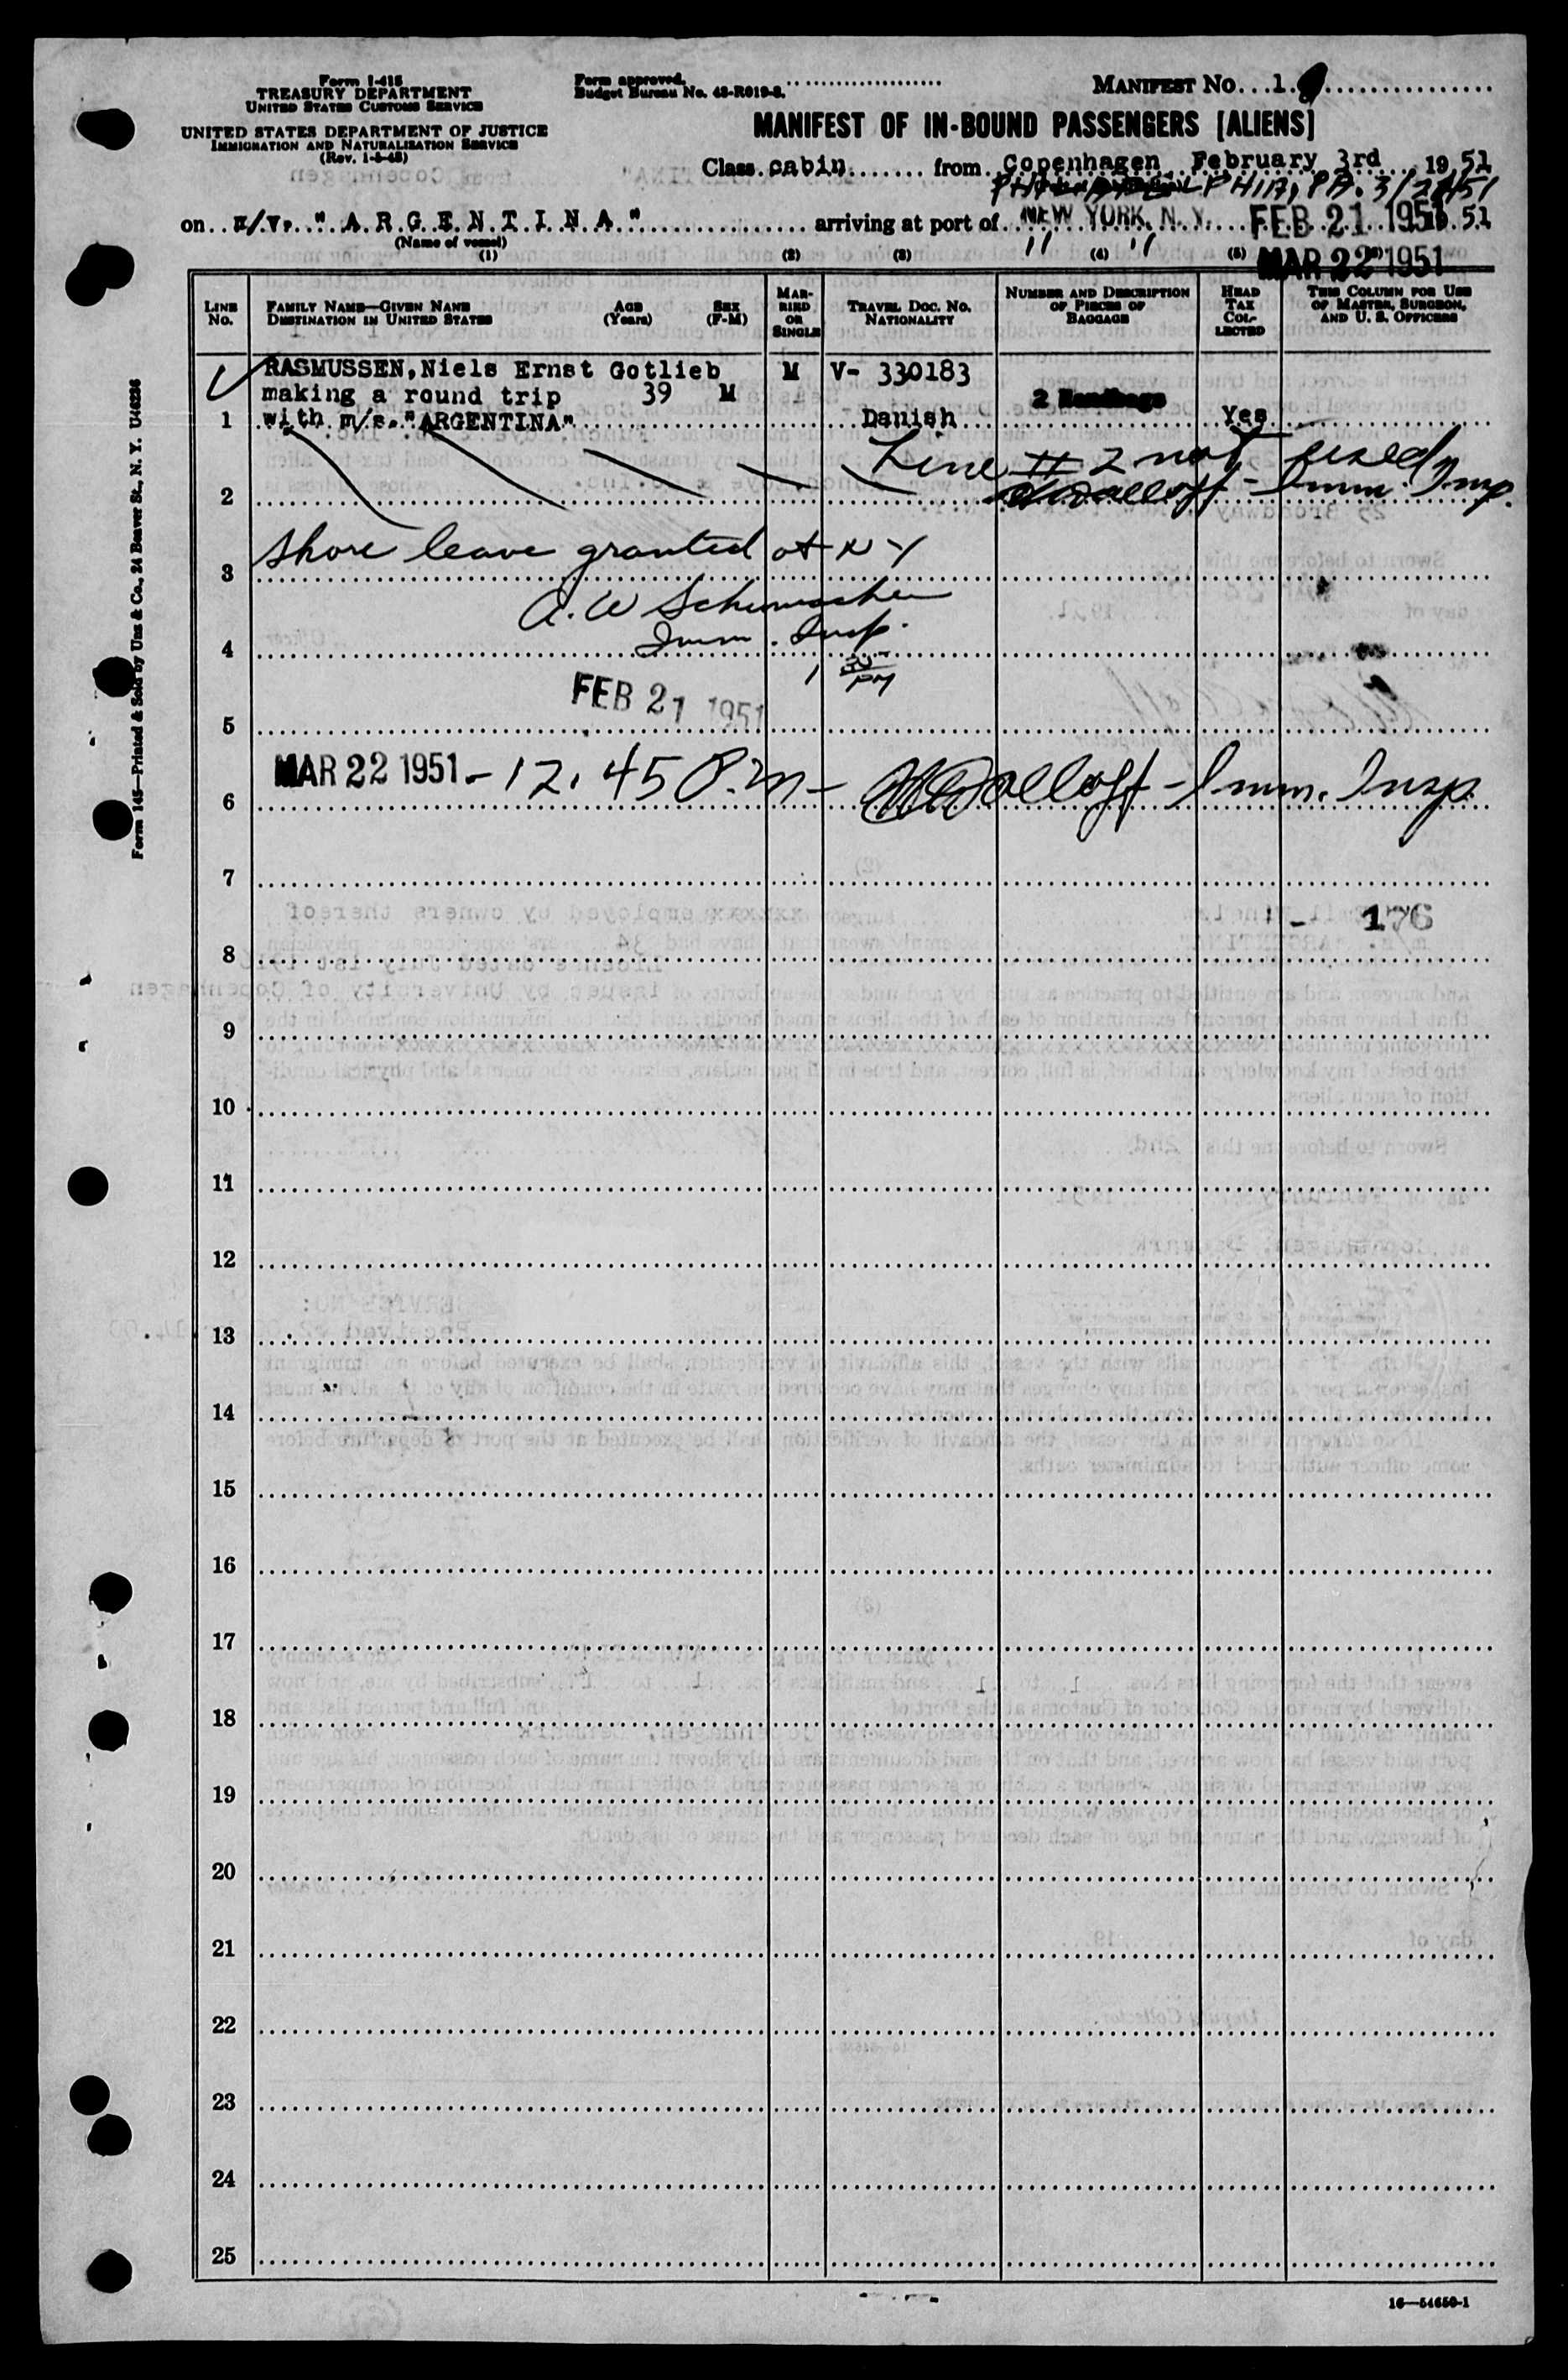 Form I-415
TREASURY DEPARTMENT
UNITED STATES CUSTOMS SERVICE
UNITED STATES DEPARTMENT OF JUSTICE
IMMIGRATION AND NATURALIZATION SERVICE
Form approved.
Budget Bureau No. 43-R019-3.
MANIFEST NO. 1.
MANIFEST OF IN-BOUND PASSENGERS [ALIENS]
Class cabin from Copenhagen February 3rd 1951
PHILA, PA.
on m/v. "A R G E N T I N A" arriving at port of NEW YORK, N. Y. FEB 21 1951 51
(Name of vessel)
" " MAR 22 1951
(1) (2) (3) (4) (5)
LINE No.
FAMILY NAME—GIVEN NAME
DESTINATION IN UNITED STATES
AGE (Years)
SEX (F-M)
MARRIED OR SINGLE
TRAVEL DOC. NO.
NATIONALITY
NUMBER AND DESCRIPTION OF PIECES OF BAGGAGE
HEAD TAX COLLECTED
THIS COLUMN FOR USE OF MASTER, SURGEON, AND U. S. OFFICERS
RASMUSSEN, Niels Ernst Gotlieb M V- 330183
making a round trip 39 M 2 Handbags
1 with m/s. "ARGENTINA" Danish Yes
Line # 2 not used
2 Imm. Insp.
shore leave granted at N Y
3
A. W Schumacher
4 Imm. Insp.
1 PM
FEB 21 1951
5
MAR 22 1951 - 12.45 P.m - Imm. Insp.
6
7
- 176
8
9
10
11
12
13
14
15
16
17
18
19
20
21
22
23
24
25
Form 145—Printed & Sold by Unz & Co., 24 Beaver St., N. Y. U46236
16—54650-1